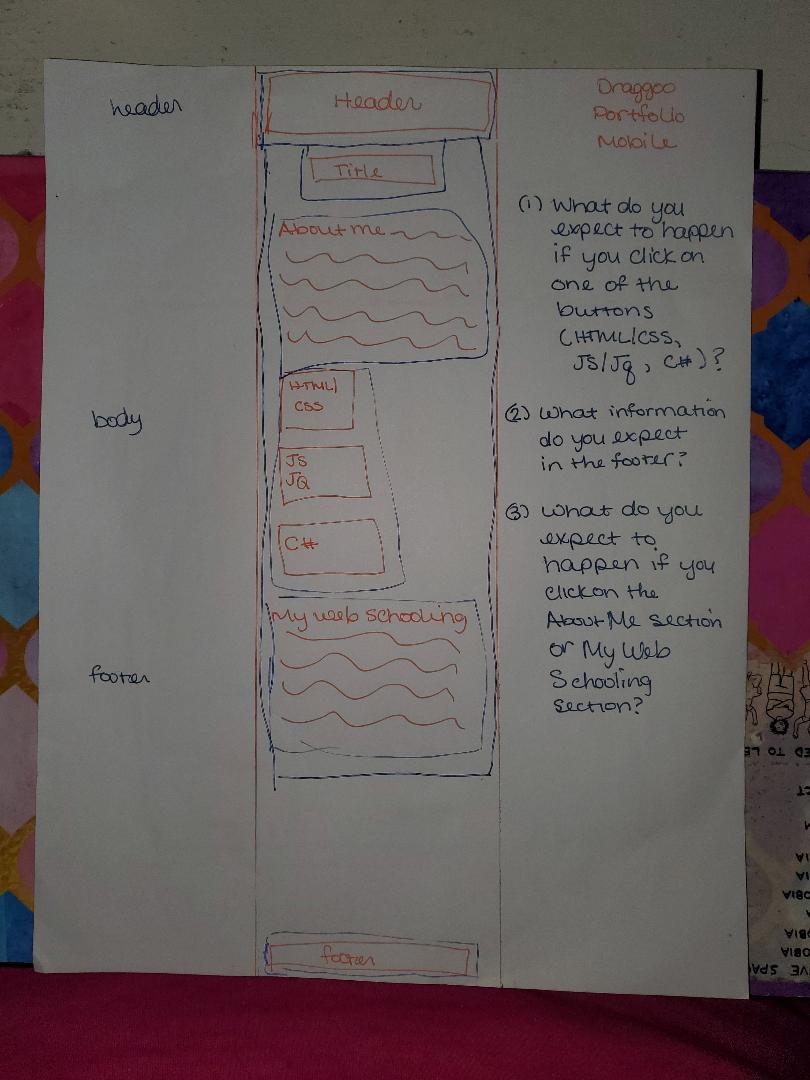 header
body
footer
Header
Title
About me
HTML/
CSS
JS
JQ
C#
My web schooling
footer
Draggoo
Portfolio
Mobile
(1) What do you
expect to happen
if you click on
one of the
buttons
(HTML/CSS,
JS/Jq, C#)?
(2) What information
do you expect
in the footer?
(3) What do you
expect to
happen if you
click on the
About Me section
or My Web
Schooling
section?